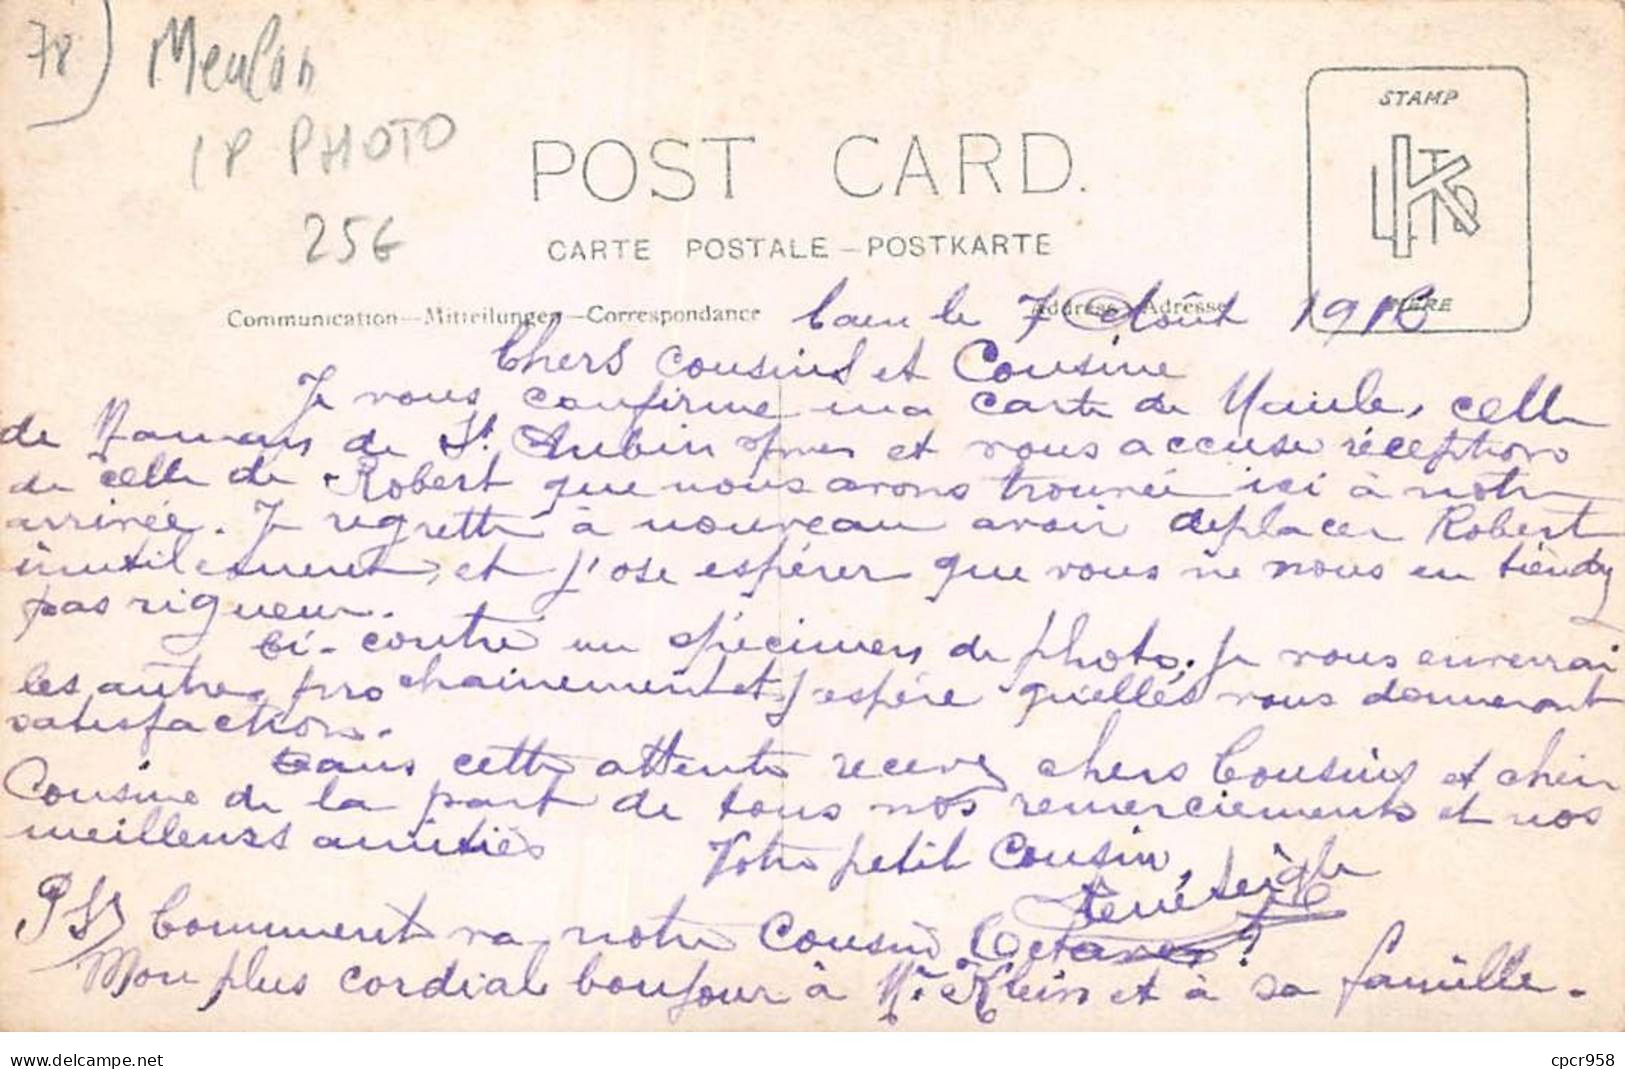 78) Meulan
1P PHOTO
25€
POST CARD.
CARTE POSTALE—POSTKARTE
STAMP
HERE
Communication—Mitteilungen—Correspondance
Address—Adresse
Caen le 7 Août 1916
Chers Cousins et Cousine
Je vous confirme ma carte de Maule, celle
de Maman de St Aubin et vous accuse réception
de celle de Robert que nous avons trouvée ici à notre
arrivée. Je regrette à nouveau avoir déplacer Robert
inutilement, et j'ose espérer que vous ne nous en tiendez
pas rigueur.
Ci-contre un spécimen de photo. Je vous enverrai
les autres prochainement et j'espère qu'elles vous donneront
satisfaction.
Dans cette attente recevez chers Cousins et chère
Cousine de la part de tous nos remerciements et nos
meilleurs amitiés
Votre petit Cousin,
René
PS/ Comment va notre Cousin Octave ?
Mon plus cordial bonjour à Mr Klein et à sa famille.
delcampe.net
cpcr958